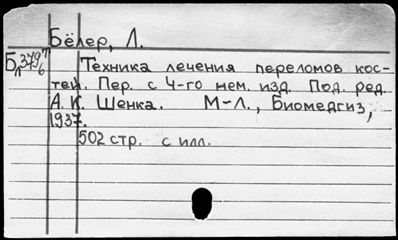 Бёлер, Л.
Б 379
Л 6
Техника лечения переломов кос-
тей. Пер. с 4-го нем. изд. Под. ред.
А. К. Шенка. М-Л., Биомедгиз,
1937.
502 стр. с илл.